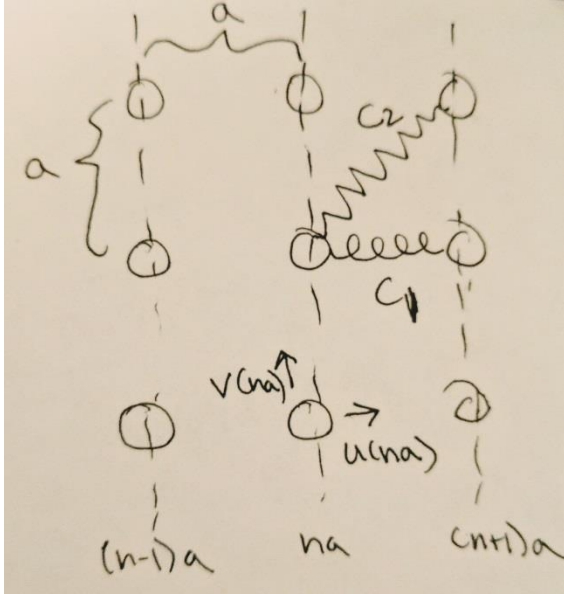 a
a
C2
C1
v(na)
u(na)
(n-1)a
na
(n+1)a